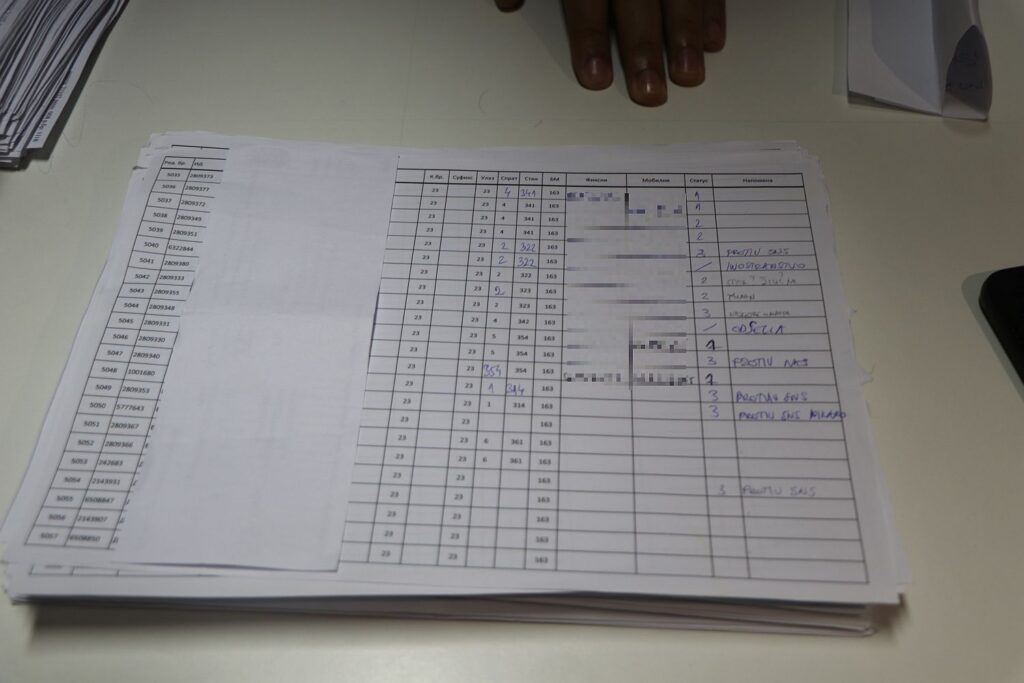 Ред. Бр. ИД К.бр. Суфикс Улаз Спрат Стан БМ Фиксни Мобилни Статус Напомена
5035 2809373 23 23 4 341 163 1
5036 2809377 23 23 4 341 163 1
5037 2809372 23 23 4 341 163 2
5038 2809349 23 23 4 341 163 2
5039 2809351 23 23 2 322 163 3 PROTIV SNS
5040 6322844 23 23 2 322 163 / INOSTRANSTVO
5041 2809380 23 23 2 322 163 2
5042 2809333 23 23 2 323 163 2
5043 2809355 23 23 2 323 163 3
5044 2809348 23 23 4 342 163 / ODSELILA
5045 2809331 23 23 5 354 163 1
5046 2809330 23 23 5 354 163 3 PROTIV NAS
5047 2809340 23 23 354 354 163 1
5048 1001680 23 23 1 314 163 3 PROTIV SNS
5049 2809353 23 23 1 314 163 3 PROTIV SNS
5050 5777643 23 23 163
5051 2809367 23 23 6 361 163
5052 2809366 23 23 6 361 163
5053 242683 23 23 163 3 PROTIV SNS
5054 2143931 23 23 163
5055 6508847 23 23 163
5056 2143907 23 23 163
5057 6508850 23 23 163